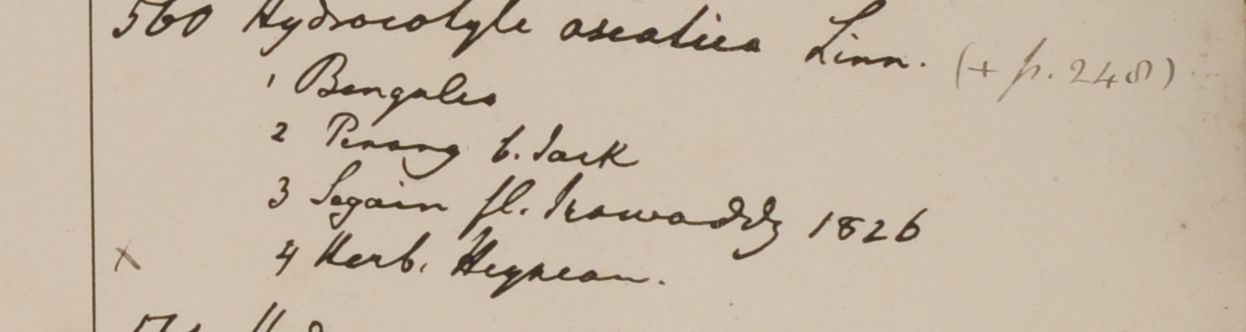 560 Hydrocotyle asiatica Linn. (+ p. 248)
1 Bengalia
2 Penang G. Jack
3 Segain fl. Irawaddy 1826
x 4 Herb. Heynean.